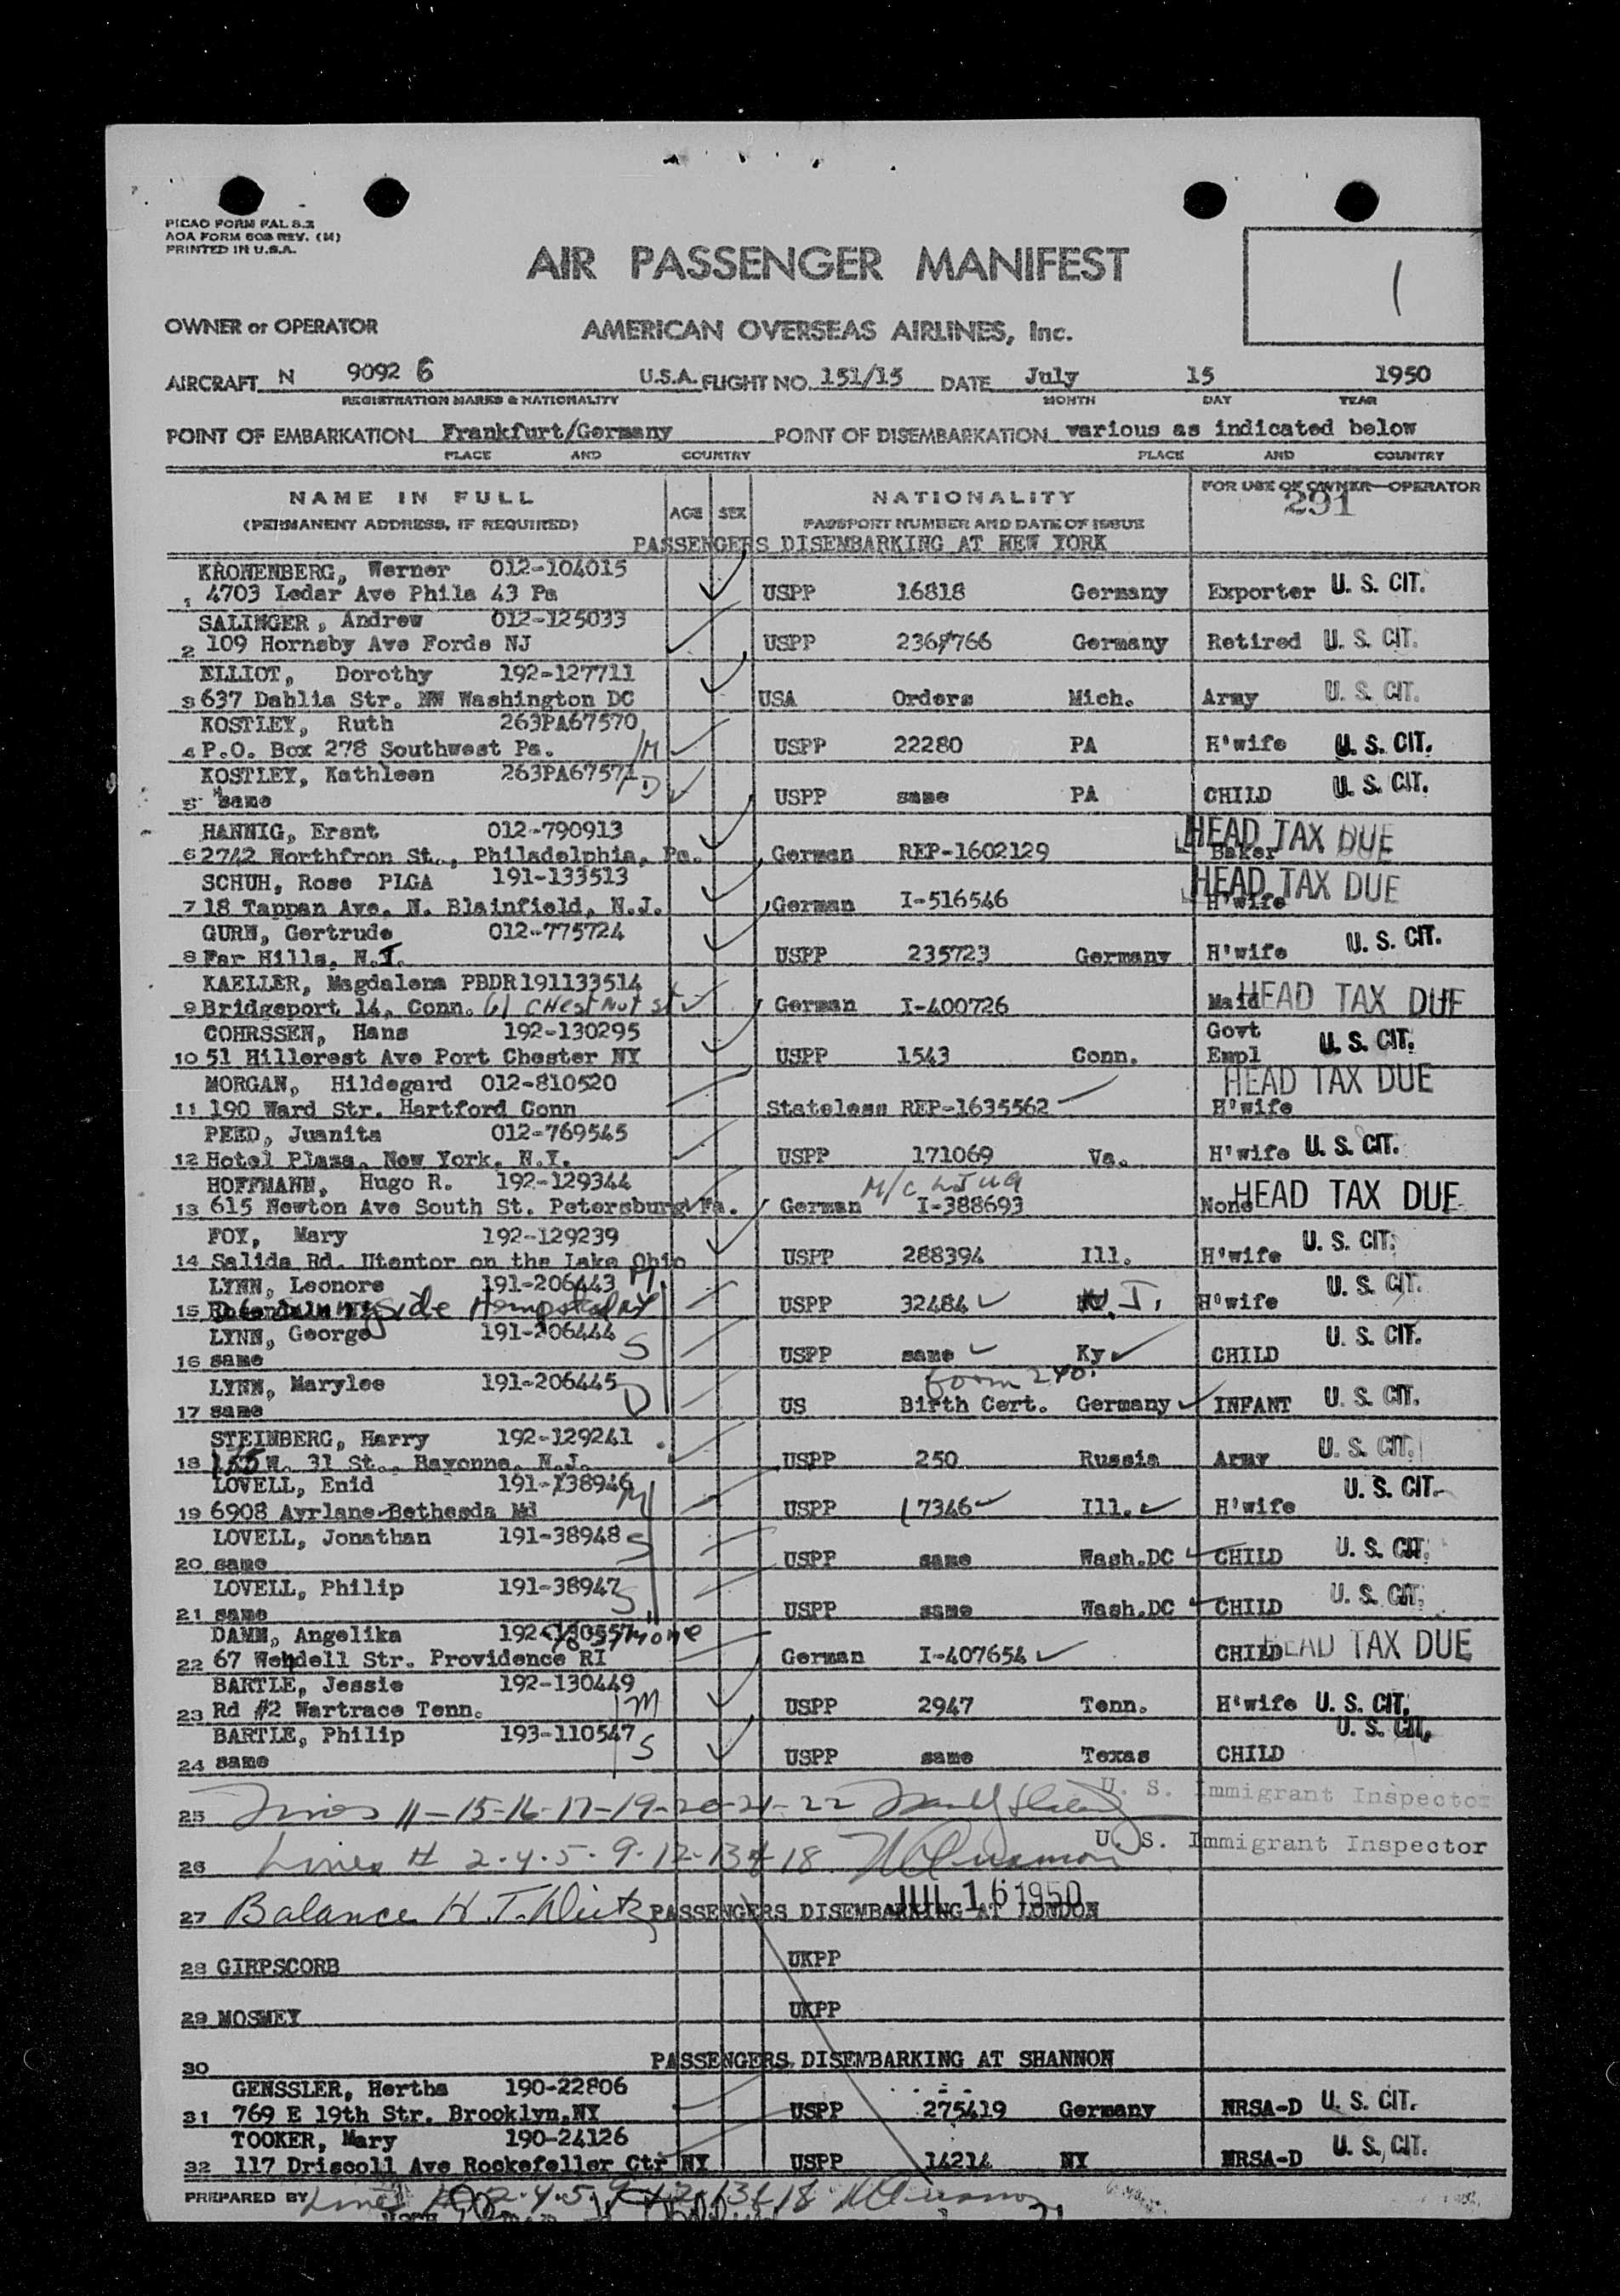 PICAO FORM FAL 8.2
AOA FORM 608 REV. (M)
PRINTED IN U.S.A.
AIR PASSENGER MANIFEST
1
OWNER or OPERATOR AMERICAN OVERSEAS AIRLINES, Inc.
AIRCRAFT N 9092 6 U.S.A. FLIGHT NO. 151/15 DATE July 15 1950
REGISTRATION MARKS & NATIONALITY MONTH DAY YEAR
POINT OF EMBARKATION Frankfurt/Germany POINT OF DISEMBARKATION various as indicated below
PLACE AND COUNTRY PLACE AND COUNTRY
NAME IN FULL AGE SEX NATIONALITY FOR USE OF OWNER OPERATOR
291
(PERMANENT ADDRESS, IF REQUIRED) PASSPORT NUMBER AND DATE OF ISSUE
PASSENGERS DISEMBARKING AT NEW YORK
KRONENBERG, Werner 012-104015
1 4703 Ledar Ave Phila 43 Pa USPP 16818 Germany Exporter U. S. CIT.
SALINGER, Andrew 012-125033
2 109 Hornsby Ave Fords NJ USPP 236 766 Germany Retired U. S. CIT.
ELLIOT, Dorothy 192-127711
3 637 Dahlia Str. NW Washington DC USA Orders Mich. Army U. S. CIT.
KOSTLEY, Ruth 263PA67570
4 P.O. Box 278 Southwest Pa. M USPP 22280 PA H'wife U. S. CIT.
KOSTLEY, Kathleen 263PA67571
5 same D USPP same PA CHILD U. S. CIT.
HANNIG, Ersnt 012-790913
6 2742 Northfron St., Philadelphia, Pa. German REP-1602129 Baker HEAD TAX DUE
SCHUH, Rose PLGA 191-133513
7 18 Tappan Ave. N. Blainfield, N.J. German I-516546 H'wife HEAD TAX DUE
GURN, Gertrude 012-775724
8 Far Hills, N.J. USPP 235723 Germany H'wife U. S. CIT.
KAELLER, Magdalena PBDR191133514
9 Bridgeport 14, Conn. 61 CHestNut St German I-400726 Maid HEAD TAX DUE
COHRSSEN, Hans 192-130295 Govt
10 51 Hillcrest Ave Port Chester NY USPP 1543 Conn. Empl U. S. CIT.
MORGAN, Hildegard 012-810520 HEAD TAX DUE
11 190 Ward Str. Hartford Conn Stateless REP-1635562 H'wife
PEED, Juanita 012-769545
12 Hotel Plaza, New York, N.Y. USPP 171069 Va. H'wife U. S. CIT.
HOFFMANN, Hugo R. 192-129344 M/C
13 615 Newton Ave South St. Petersburg Fa. German I-388693 None HEAD TAX DUE
FOY, Mary 192-129239
14 Salida Rd. Utentor on the Lake Ohio USPP 288394 Ill. H'wife U. S. CIT.
LYNN, Leonore 191-206443 M
15 Sunnyside Hempstead NY USPP 32484 N.J. H'wife U. S. CIT.
LYNN, George 191-206444 S
16 same USPP same Ky CHILD U. S. CIT.
LYNN, Marylee 191-206445 D form 240.
17 same US Birth Cert. Germany INFANT U. S. CIT.
STEINBERG, Harry 192-129241
18 155 W. 31 St., Bayonne, N.J. USPP 250 Russia Army U. S. CIT.
LOVELL, Enid 191-138946 M
19 6908 Ayrlane Bethesda Md USPP 17346 Ill. H'wife U. S. CIT.
LOVELL, Jonathan 191-38948 S
20 same USPP same Wash.DC CHILD U. S. CIT.
LOVELL, Philip 191-38947 S
21 same USPP same Wash.DC CHILD U. S. CIT.
DAMM, Angelika 192-130557
22 67 Wendell Str. Providence RI German I-407654 CHILD HEAD TAX DUE
BARTLE, Jessie 192-130449
23 Rd #2 Wartrace Tenn. M USPP 2947 Tenn. H'wife U. S. CIT.
BARTLE, Philip 193-110547 S
24 same USPP same Texas CHILD U. S. CIT.
25 Lines 11-15-16-17-19-20-21-22 U. S. Immigrant Inspector
26 Lines # 2.4.5.9.12.13+18 U. S. Immigrant Inspector
27 Balance H.T. PASSENGERS DISEMBARKING AT LONDON JUL 16 1950
28 GIRPSCORB UKPP
29 MOSMEY UKPP
30 PASSENGERS DISEMBARKING AT SHANNON
GENSSLER, Hertha 190-22806
31 769 E 19th Str. Brooklyn,NY USPP 275419 Germany NRSA-D U. S. CIT.
TOOKER, Mary 190-24126
32 117 Driscoll Ave Rockefeller Ctr NY USPP 14214 NY NRSA-D U. S. CIT.
PREPARED BY Lines 2.4.5.9.12.13+18